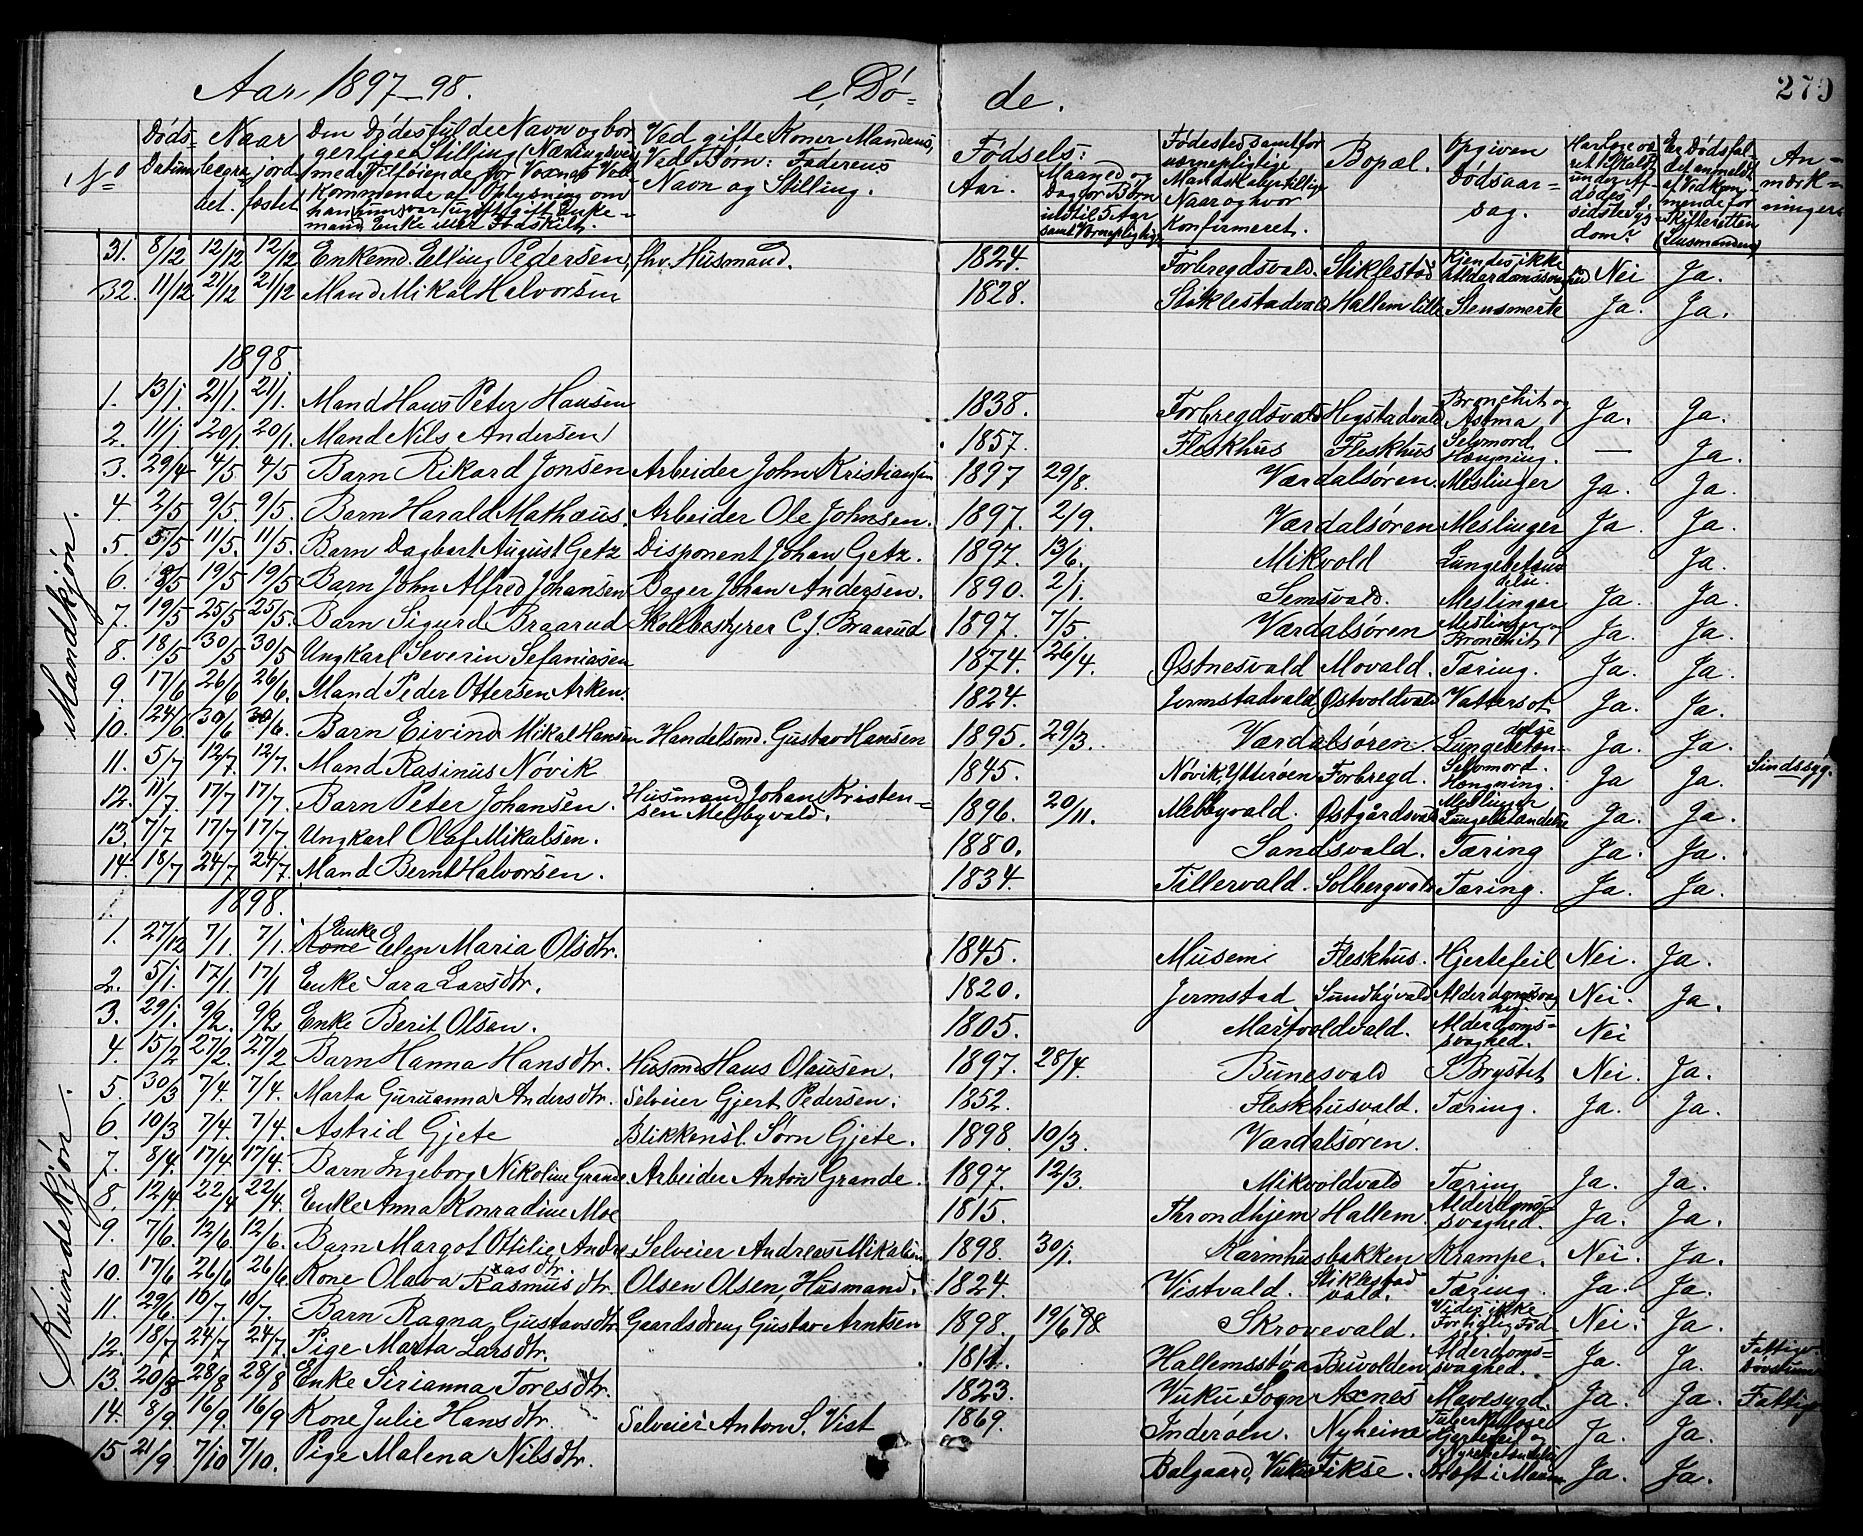 Aar, 1897-98. e, Dø- de. 279
No Døds- Datum Naar begra- vet. jord- fæstet Den Dødes fulde Navn og bor- gerlige Stilling (Næringsvei) med Tilføiende for Voxnes Ved- kommende af Oplysning om han (hun) var ugift, gift, Enke- mand, Enke eller Fraskilt. Ved gifte Koner Mandens, Ved Børn: Faderens Navn og Stilling. Fødsels: Aar. Maaned og Dag for Børn indtil 5 Aar samt Værnepligtige Fødested samt for værnepligtige Mandskabers tillige Naar og hvor Konfirmeret. Bopæl. Opgiven Dødsaar= sag. Har Læge væ- ret tilkaldt under Af- dødes sidste Syg- dom? Er Dødsfal- det anmeldt af Vidkom- mende for Skifteretten (Lensmanden) An- mærk- ninger.
Mandkjøn.
31. 8/12 12/12 12/12 Enkemd. Elling Pedersen, fhv. Husmand. 1824. Forbregdsvald. Stiklestad Kjendes ikke Alderdomssvaghed Nei Ja.
32. 11/12 21/12 21/12 Mand Mikal Halvorsen 1828. Stiklestadvald Hallem lille Stensmerte Ja. Ja.
1898.
1. 13/1. 21/1. 21/1. Mand Hans Peter Hansen 1838. Forbregdsvald Hegstadvald Bronchit og Astma Ja. Ja.
2. 11/1 20/1. 20/1. Mand Nils Andersen 1857. Fleskhus Fleskhus Selvmord Hængning. — Ja.
3. 29/4 4/5 4/5 Barn Rikard Jonsen Arbeider John Kristiansen 1897 29/8. Værdalsøren. Meslinger Ja. Ja.
4. 2/5 9/5. 9/5. Barn Harald Mathæus. Arbeider Ole Johnsen. 1897. 2/9. Værdalsøren Meslinger Ja. Ja.
5. 5/5 11/5. 11/5. Barn Dagbart August Getz Disponent Johan Getz. 1897. 13/6. Mikvold Lungebetæn- delse. Ja.
6. 8/5 19/5 19/5 Barn John Alfred Johansen Bager Johan Andersen. 1890. 2/1. Semsvald. Meslinger Ja. Ja.
7. 19/5 25/5 25/5. Barn Sigurd Braarud Skolebestyrer C. J. Braarud 1897. 7/5. Værdalsøren Meslinger og Bronchit Ja. Ja.
8. 18/5 30/5 30/5 Ungkarl Severin Sefaniasen 1874. 26/4. Østnesvald Movald. Tæring. Ja. Ja.
9. 17/6 26/6 26/6. Mand Peder Ottersen Arken. 1824. Jermstadvald Østvoldvald Vattersot Ja. Ja.
10. 24/6. 30/6 30/6. Barn Eivind Mikal Hansen Handelsmd. Gustav Hansen 1895. 29/3. Værdalsøren. Lungebetæn- delse Ja. Ja.
11. 5/7 12/7. 12/7. Mand Rasinus Nøvik 1845. Nøvik, Ytterøen Forbregd. Selvmord. Hængning. Ja Ja. Sindssyg.
12. 11/7. 17/7 17/7. Barn Peter Johansen. Husmand Johan Kristen= sen Melbyvald. 1896. 20/11. Melbyvald. Østgårdsvald Meslinger Lungebetændelse Ja. Ja.
13. 7/7 17/7 17/7. Ungkarl Olaf Mikalsen. 1880. Sandsvald. Tæring Ja. Ja.
14. 18/7 24/7 24/7. Mand Bernt Halvorsen. 1834. Tillervald. Solbergvald Tæring. Ja. Ja.
Kvindekjøn.
1898.
1. 27/12 7/1. 7/1. Kone Enke Elen Maria Olsdtr. 1845. Musem Fleskhus. Hjertefeil Nei. Ja.
2. 5/1. 17/1. 17/1 Enke Sara Larsdtr. 1820. Jermstad Sundbyvald Alderdomssvag- hed. Nei. Ja.
3. 29/1. 9/2. 9/2 Enke Berit Olsen. 1805. Maritvoldvald. Alderdoms= svaghed. Nei
4. 15/2 27/2. 27/2 Barn Hanna Hansdtr. Husmd Hans Olausen. 1897. 28/4. Bunesvald S. Brystet Nei. Ja.
5. 30/3 7/4. 7/4. Marta Guruanna Andersdtr. Selveier Gjert Pedersen. 1852. Fleskhusvald. Tæring. Ja. Ja.
6. 10/3 7/4. 7/4. Astrid Gjete Blikkensl. Sørn Gjete. 1898. 10/3. Værdalsøren.
7. 8/4. 17/4. 17/4. Barn Ingeborg Nikoline Grande Arbeider Anton Grande. 1897. 12/3. Mikvoldvald Tæring Ja. Ja.
8. 12/4. 22/4 22/4. Enke Anna Konradine Moe 1815. Throndhjem Hallem. Alderdoms- svaghed. Ja. Ja.
9. 7/6. 12/6 12/6. Barn Margot Ottilie Andre Selveier Andreas Mikalsen 1898. 30/1. Karmhusbakken Krampe. Nei. Ja.
10. 17/6 26/6 26/6 Kone Olava Rasmusdtr. Olsen Olsen, Husmand. 1824. Vistvald. Stiklestad vald. Tæring. Ja. Ja.
11. 29/6. 10/7. 10/7. Barn Ragna Gustavsdtr Gaardsdreng Gustav Arntsen 1898. 19/6 98. Skrovevald. Vides ikke Fortidlig Fød- sel. Nei. Ja.
12. 18/7 24/7 24/7. Pige Marta Larsdtr. 1814. Hallemsstøa Buvolden Alderdoms= svaghed. Ja. Ja. Fattig. Døvstum
13. 20/8 28/8 28/8 Enke Sirianna Toresdtr. 1823. Vuku Sogn Axnes Mavesygd. Ja. Ja. Fattig
14. 8/9. 16/9. 16/9 Kone Julie Hansdtr. Selveier Anton S. Vist 1869. Inderøen. Nyheim Tuberkulose Hjertefeil og Nyrebetændelse Ja. Ja.
15 21/9 7/10 7/10. Pige Malena Nilsdtr. Balgaard, Vuku Fikse. Kræft i Maven Ja. Ja.